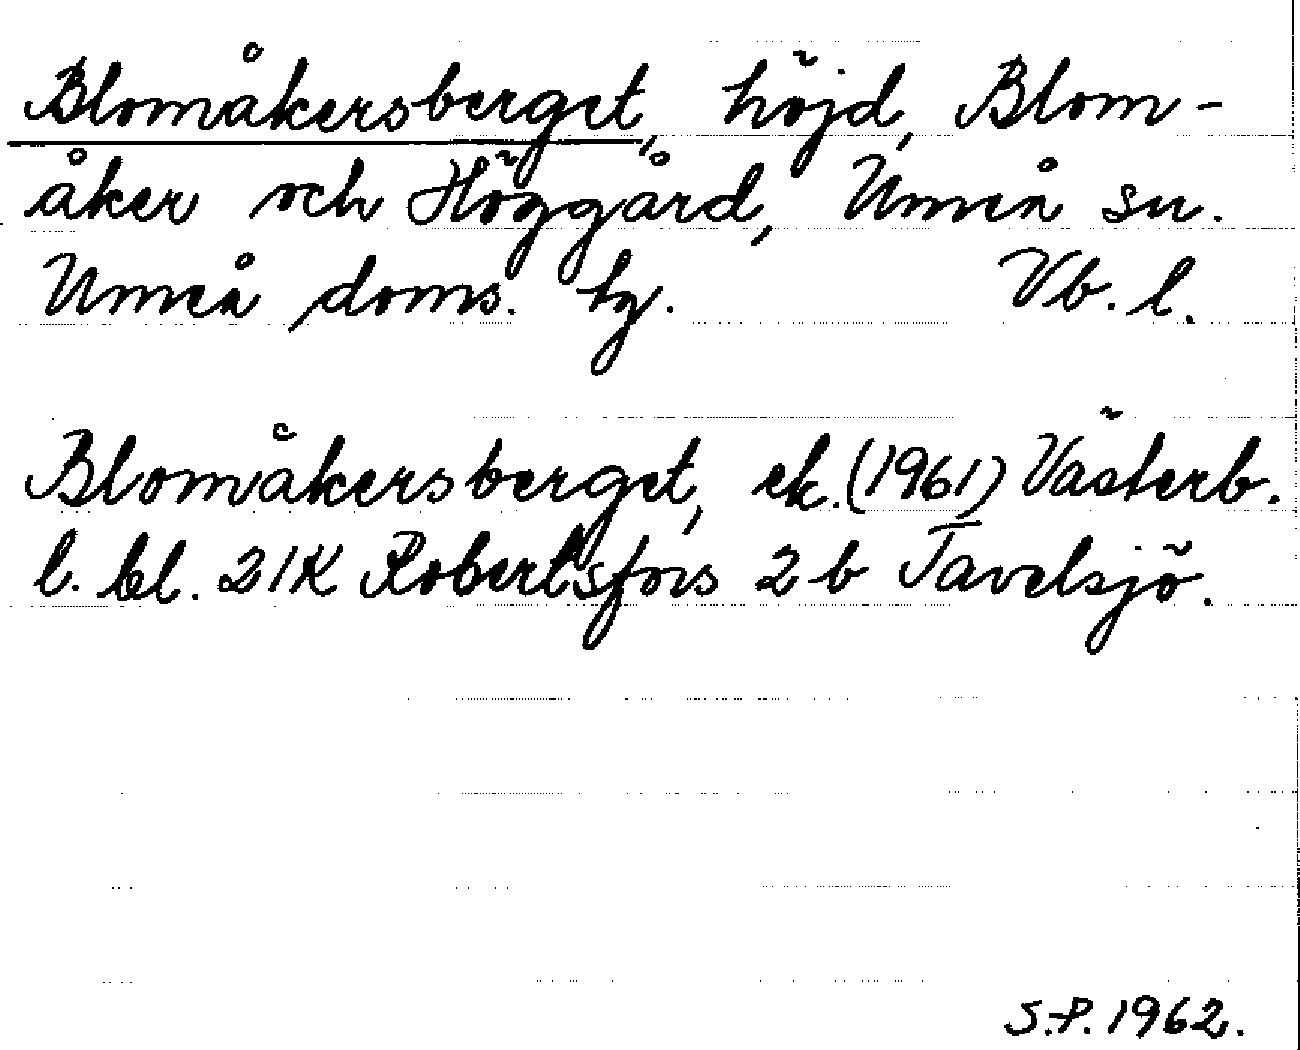 Blomåkersberget, höjd, Blom-
åker och Höggård, Umeå sn.
Umeå doms. hg. Vb. l.
Blomåkersberget, ek. (1961) Västerb.
l. bl. 21K Robertsfors 2 b Tavelsjö.
S.P. 1962.